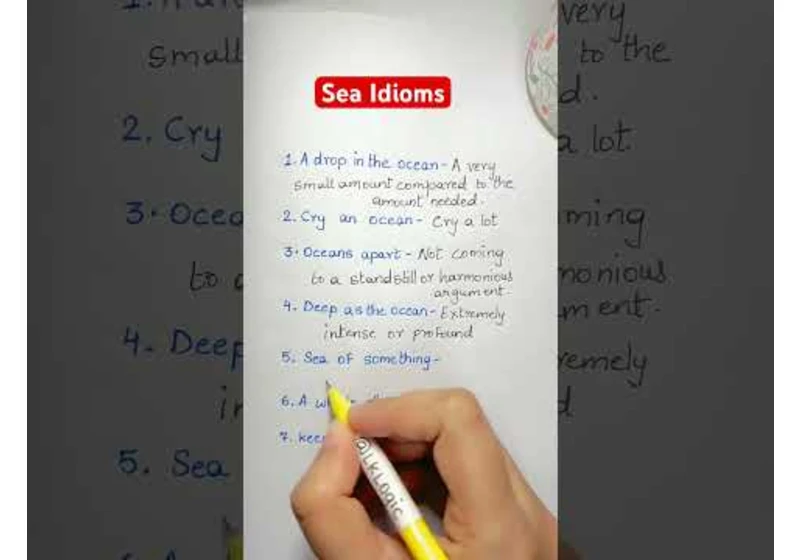 Sea Idioms
1. A drop in the ocean - A very
small amount compared to the
amount needed.
2. Cry an ocean - Cry a lot
3. Oceans apart - Not coming
to a standstill or harmonious
argument.
4. Deep as the ocean - Extremely
intense or profound
5. Sea of something -
6. A
7. keep
@LKLogic